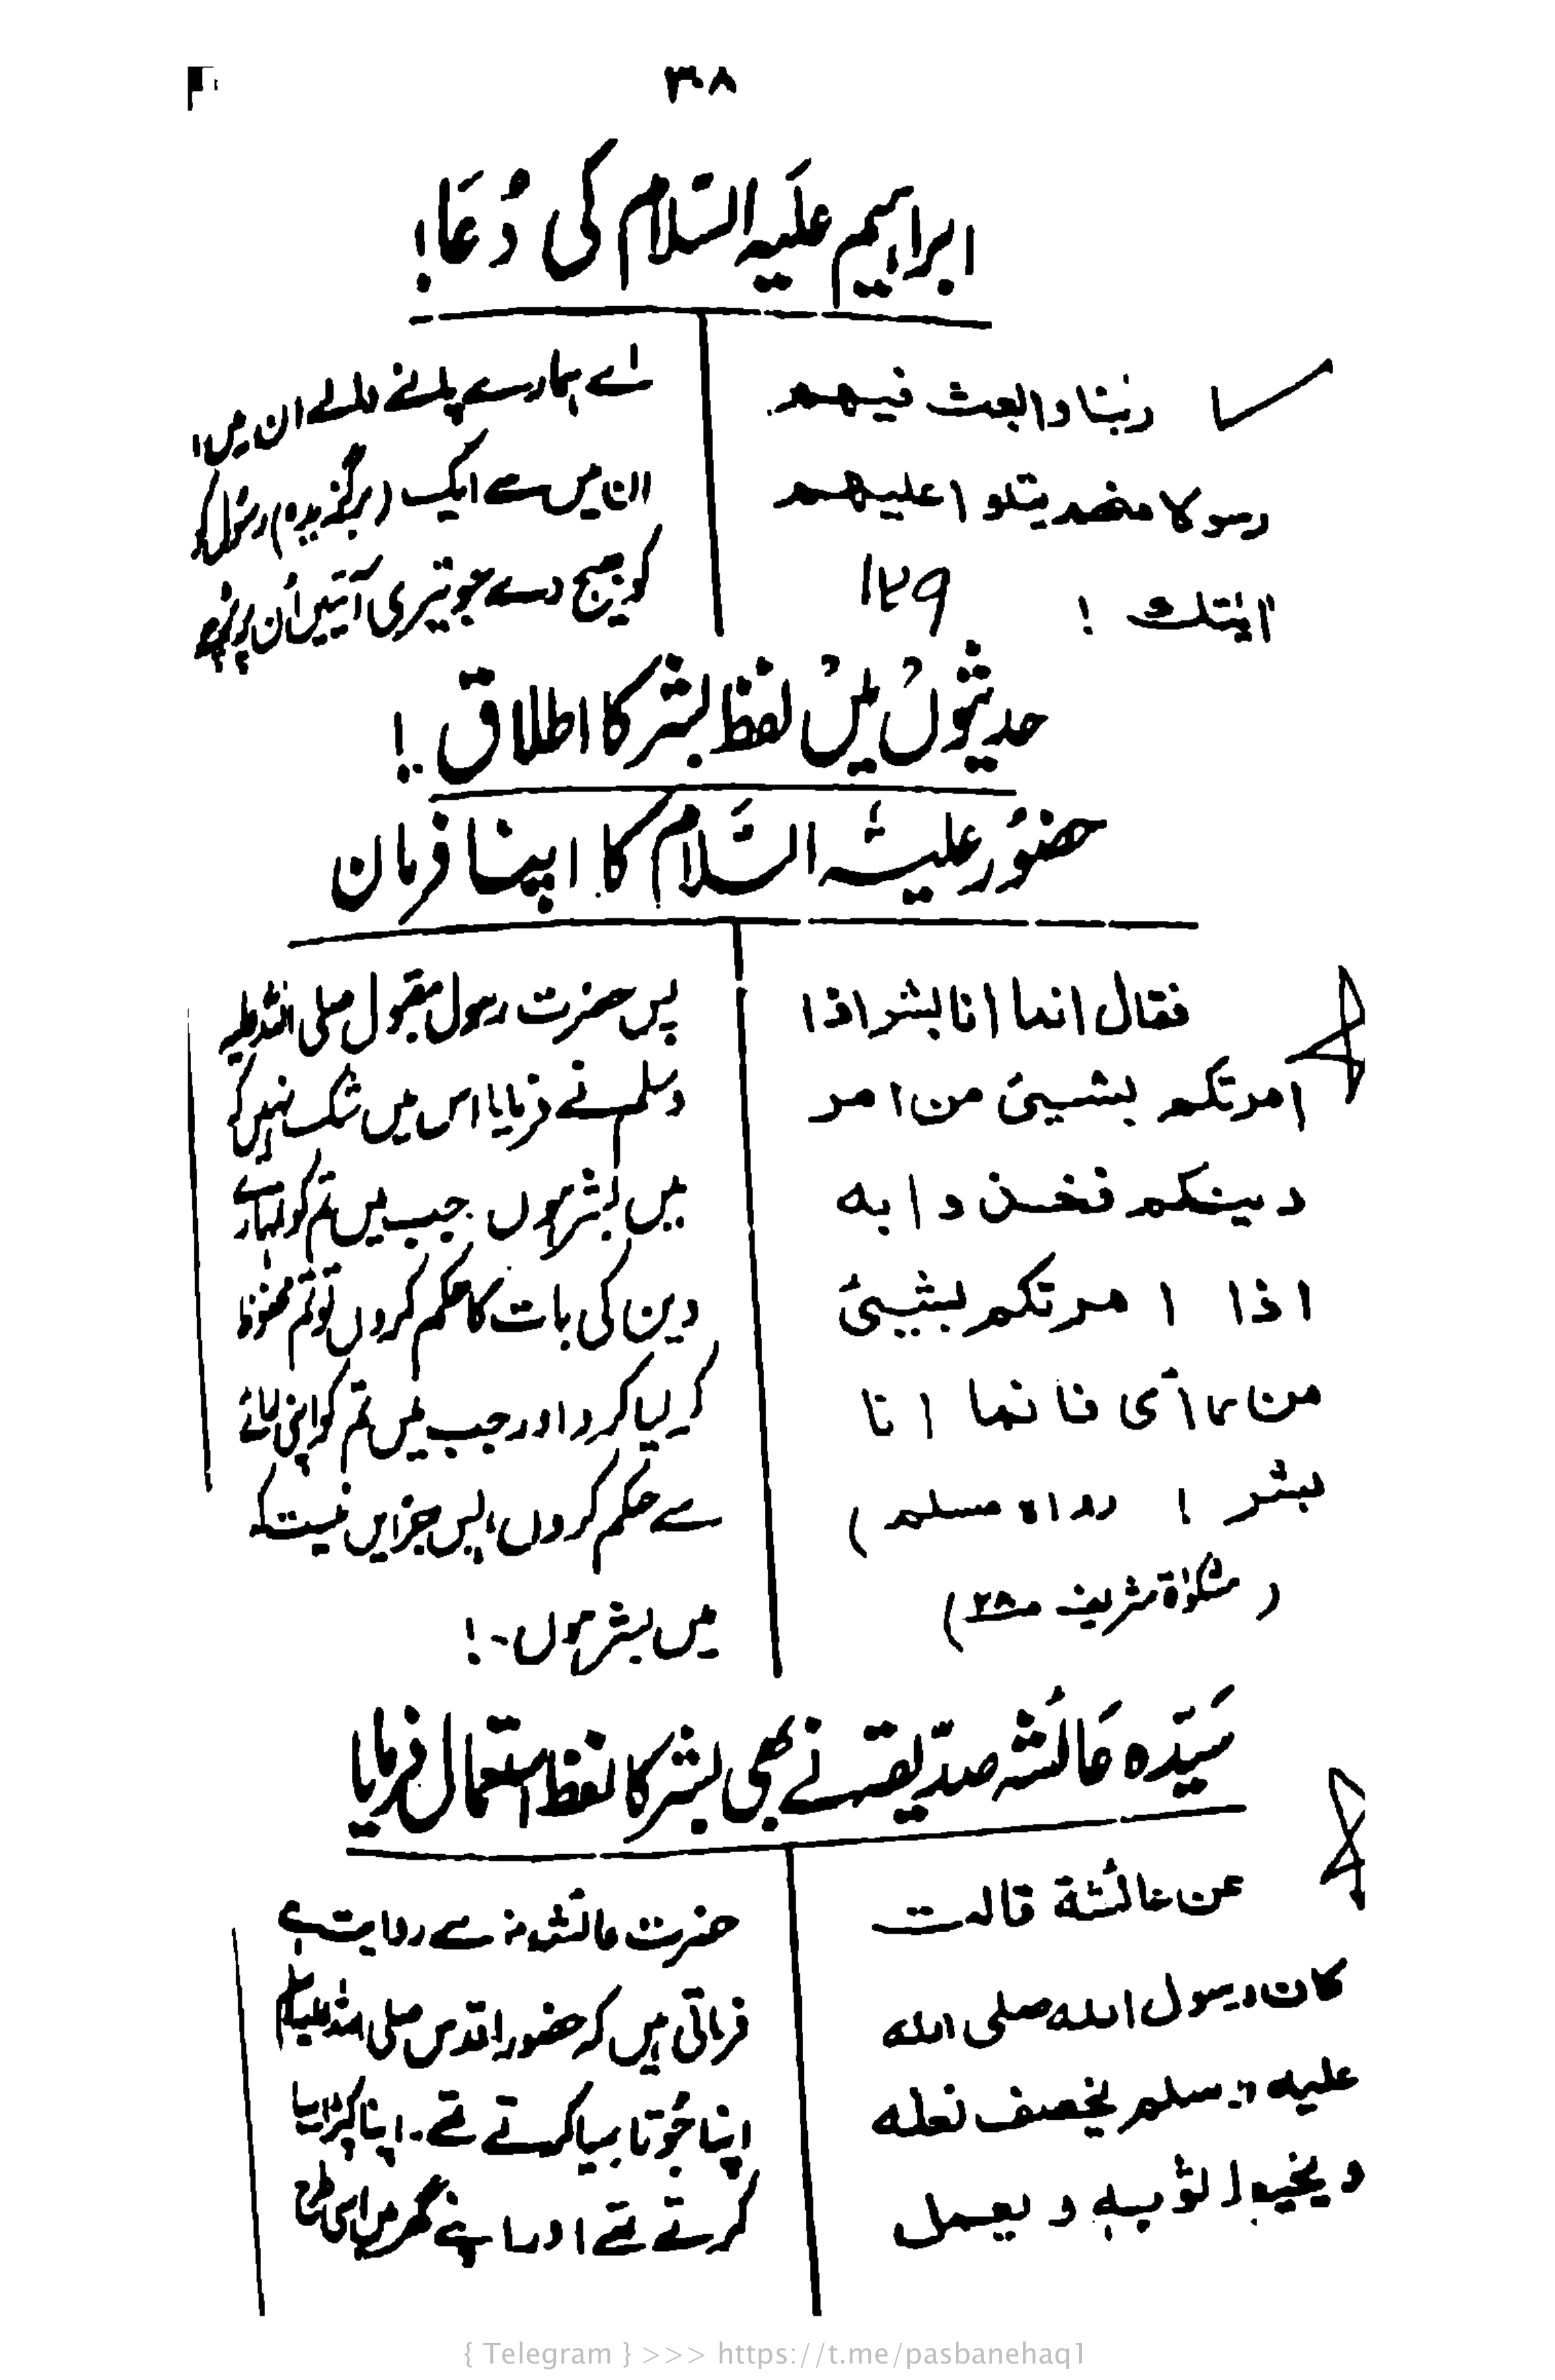 ۳۸
ابراہیم علیہ السّلام کی دُعا!
ربّنا وابعث فیہم
رسولا منہم یتلوا علیہم
اٰیٰتک ! ۱۲۹
اے ہمارے پالنے والے ان میں،
ان میں سے ایک (برگزیدہ) رسُول کو
کو بھیج دے جو تیری آیتیں اُن پر پڑھے
حدیثوں میں لفظ بشر کا اطلاق !
حضورُ علیہ السَّلام کا اپنا فرمان
فقال انما انا بشر اذا
امرتکم بشیئ من امر
دینکم فخذوا به
اذا امرتکم بشیئ
من رائی فانما انا
بشر ! رواه مسلم )
( مشکوٰة شریف ص۲۸ )
پس حضرت رسول مقبول صلی اللہ علیہ
وسلم نے فرمایا اس میں شک نہیں کہ
میں بشر ہوں . جب میں تم کو تمہارے
دین کی بات کا حکم کروں تو تم محفوظ
کر لیا کرو اور جب میں تم کو اپنی رائے
سے حکم کروں، پس جز ایں نیست کہ
میں بشر ہوں۔!
سَیّدہ عائشہ صدّیقہ نے بھی بشر کا لفظ استعمال فرمایا
عن عائشة قالت
کان رسول الله صلی الله
علیه وسلم یخصف نعله
ویخیط ثوبه و یعمل
حضرت عائشہ رض سے روایت ہے
فرماتی ہیں کہ حضور اقدس صلی اللہ علیہ وسلم
اپنا جُوتا سیا کرتے تھے۔ اپنا کپڑا سیا
کرتے تھے اور اپنے گھر میں اسی طرح
{ Telegram } >>> https://t.me/pasbanehaq1